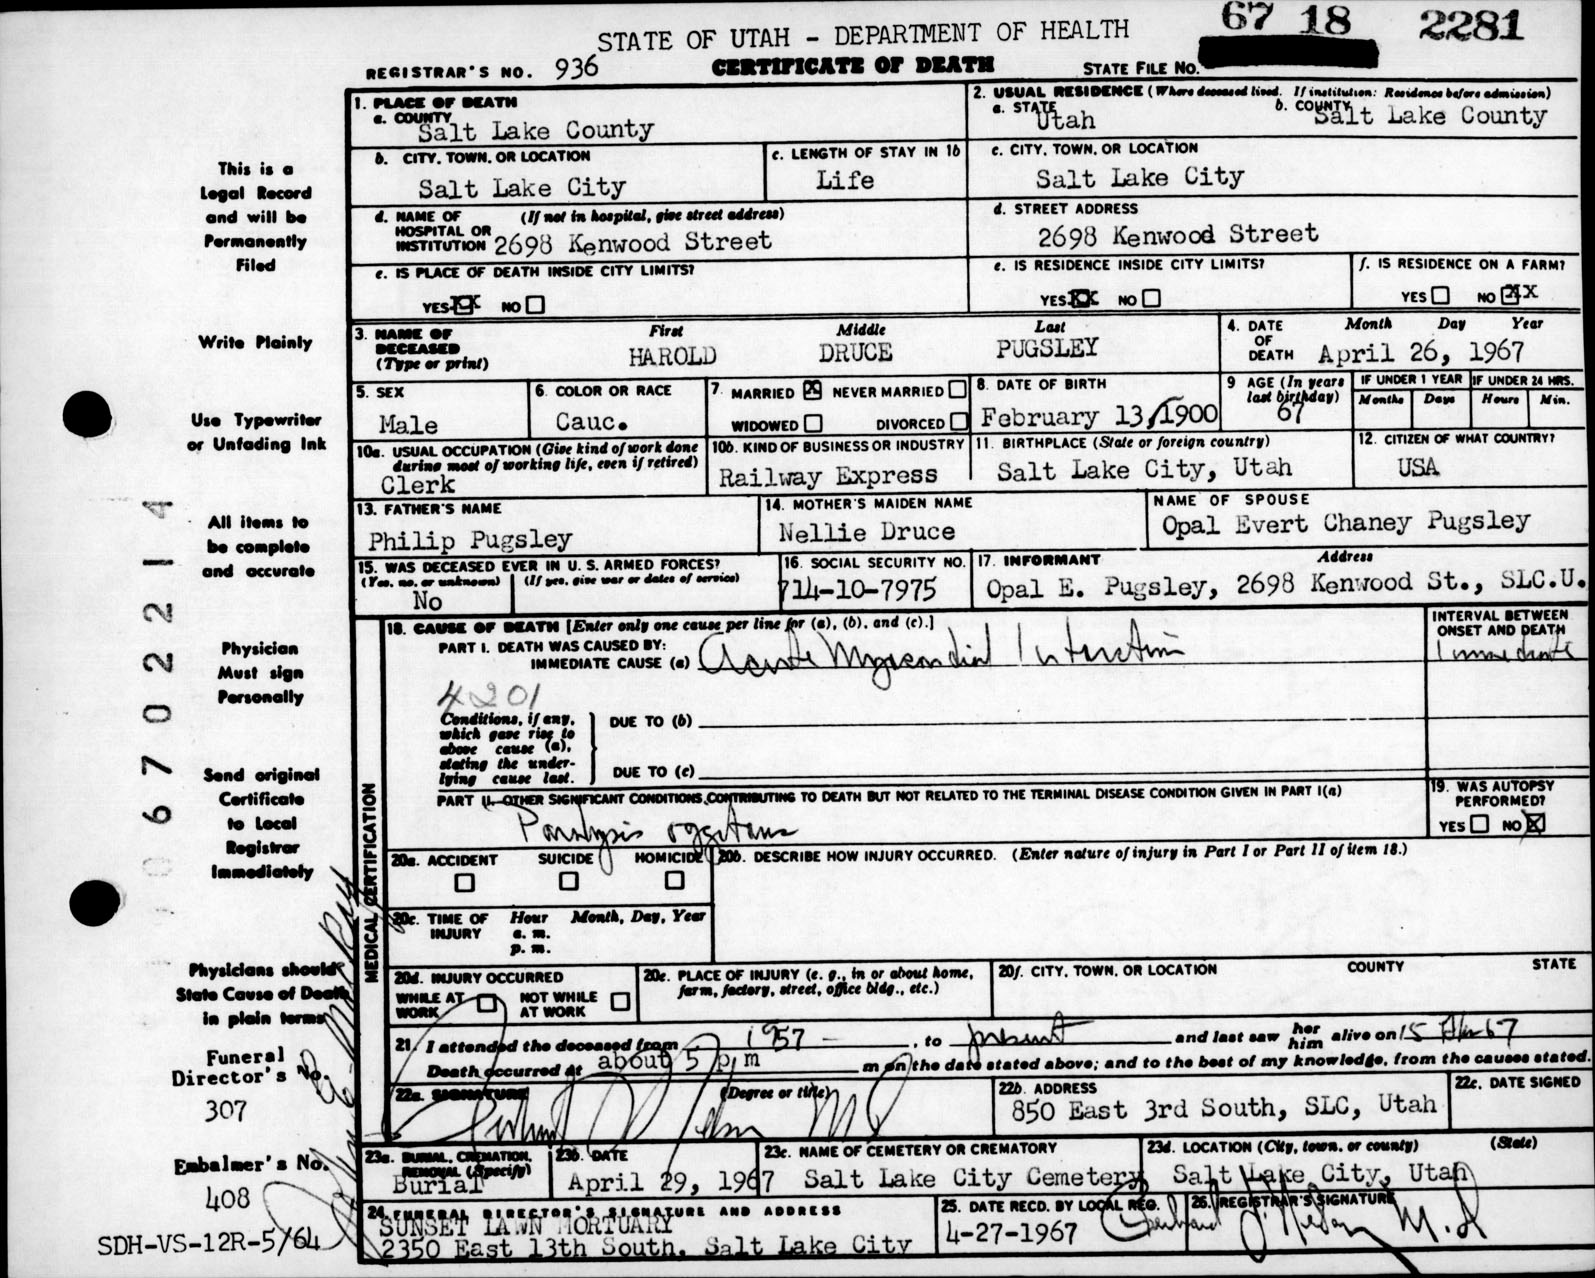 67 18 2281
STATE OF UTAH - DEPARTMENT OF HEALTH
REGISTRAR'S NO. 936 CERTIFICATE OF DEATH STATE FILE NO.
1. PLACE OF DEATH
a. COUNTY
Salt Lake County
2. USUAL RESIDENCE (Where deceased lived. If institution: Residence before admission)
a. STATE b. COUNTY
Utah Salt Lake County
b. CITY, TOWN, OR LOCATION
Salt Lake City
c. LENGTH OF STAY IN 1b
Life
c. CITY, TOWN, OR LOCATION
Salt Lake City
d. NAME OF (If not in hospital, give street address)
HOSPITAL OR
INSTITUTION 2698 Kenwood Street
d. STREET ADDRESS
2698 Kenwood Street
e. IS PLACE OF DEATH INSIDE CITY LIMITS?
YES XX NO
e. IS RESIDENCE INSIDE CITY LIMITS?
YES XX NO
f. IS RESIDENCE ON A FARM?
YES NO XX
3. NAME OF DECEASED (Type or print)
First Middle Last
HAROLD DRUCE PUGSLEY
4. DATE OF DEATH
Month Day Year
April 26, 1967
5. SEX
Male
6. COLOR OR RACE
Cauc.
7. MARRIED X NEVER MARRIED
WIDOWED DIVORCED
8. DATE OF BIRTH
February 13, 1900
9 AGE (In years last birthday)
67
IF UNDER 1 YEAR IF UNDER 24 HRS.
Months Days Hours Min.
10a. USUAL OCCUPATION (Give kind of work done
during most of working life, even if retired)
Clerk
10b. KIND OF BUSINESS OR INDUSTRY
Railway Express
11. BIRTHPLACE (State or foreign country)
Salt Lake City, Utah
12. CITIZEN OF WHAT COUNTRY?
USA
13. FATHER'S NAME
Philip Pugsley
14. MOTHER'S MAIDEN NAME
Nellie Druce
NAME OF SPOUSE
Opal Evert Chaney Pugsley
15. WAS DECEASED EVER IN U. S. ARMED FORCES?
(Yes, no, or unknown) (If yes, give war or dates of service)
No
16. SOCIAL SECURITY NO.
714-10-7975
17. INFORMANT Address
Opal E. Pugsley, 2698 Kenwood St., SLC.U.
18. CAUSE OF DEATH [Enter only one cause per line for (a), (b), and (c).]
PART I. DEATH WAS CAUSED BY:
IMMEDIATE CAUSE (a) Acute Myocardial Infarction
INTERVAL BETWEEN
ONSET AND DEATH
Immediate
4201
Conditions, if any,
which gave rise to
above cause (a),
stating the under-
lying cause last.
DUE TO (b)
DUE TO (c)
PART II. OTHER SIGNIFICANT CONDITIONS CONTRIBUTING TO DEATH BUT NOT RELATED TO THE TERMINAL DISEASE CONDITION GIVEN IN PART I(a)
Paralysis agitans
19. WAS AUTOPSY
PERFORMED?
YES NO X
20a. ACCIDENT SUICIDE HOMICIDE
20b. DESCRIBE HOW INJURY OCCURRED. (Enter nature of injury in Part I or Part II of item 18.)
20c. TIME OF INJURY
Hour Month, Day, Year
a. m.
p. m.
20d. INJURY OCCURRED
WHILE AT WORK NOT WHILE AT WORK
20e. PLACE OF INJURY (e. g., in or about home,
farm, factory, street, office bldg., etc.)
20f. CITY, TOWN, OR LOCATION COUNTY STATE
21. I attended the deceased from 1957 , to present and last saw her him alive on 15 67
Death occurred at about 5 p m m on the date stated above; and to the best of my knowledge, from the causes stated.
22a. SIGNATURE (Degree or title)
MD
22b. ADDRESS
850 East 3rd South, SLC, Utah
22c. DATE SIGNED
23a. BURIAL, CREMATION,
REMOVAL (Specify)
Burial
23b. DATE
April 29, 1967
23c. NAME OF CEMETERY OR CREMATORY
Salt Lake City Cemetery
23d. LOCATION (City, town, or county) (State)
Salt Lake City, Utah
24. FUNERAL DIRECTOR'S SIGNATURE AND ADDRESS
SUNSET LAWN MORTUARY
2350 East 13th South, Salt Lake City
25. DATE RECD. BY LOCAL REG.
4-27-1967
26. REGISTRAR'S SIGNATURE
M.D
MEDICAL CERTIFICATION
This is a
Legal Record
and will be
Permanently
Filed
Write Plainly
Use Typewriter
or Unfading Ink
All items to
be complete
and accurate
Physician
Must sign
Personally
Send original
Certificate
to Local
Registrar
Immediately
Physicians should
State Cause of Death
in plain terms
Funeral
Director's No.
307
Embalmer's No.
408
SDH-VS-12R-5/64
06702214